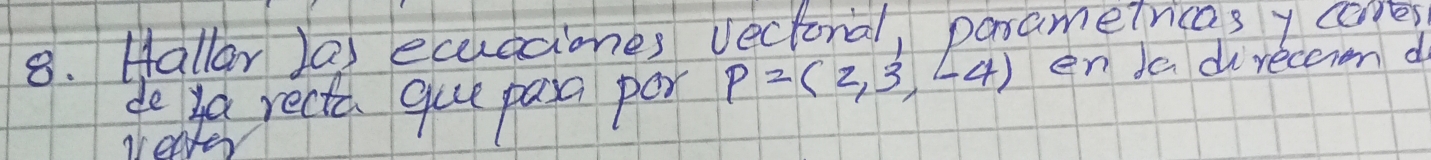 8. Hallar las ecuaciones vectorial, parametricas y
de la recta que pasa por P = (2, 3, -4) en la direccion d
vector